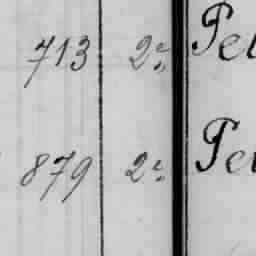 713 2º Pe
879 2º Pe